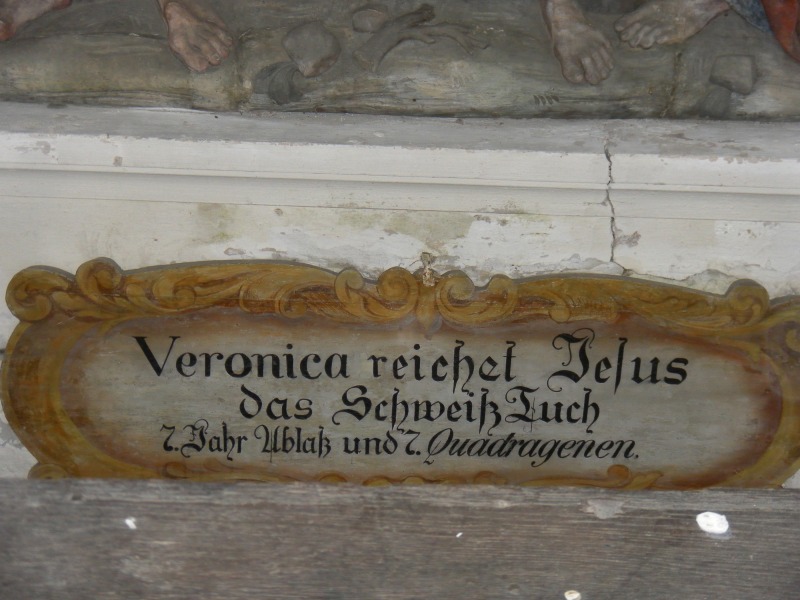 Veronica reichet Jesus
das Schweiß Tuch
7. Jahr Ablaß und 7. Quadragenen.